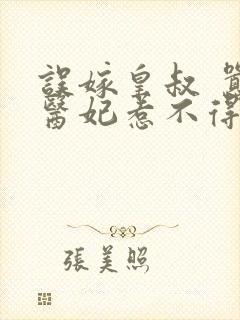 誤嫁皇叔
醫妃惹不得
張美照